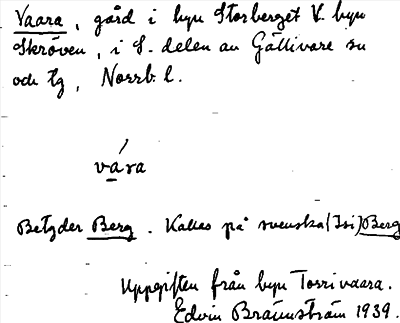 Vaara, gård i byn Storberget V. byn
Skröven, i S. delen av Gällivare sn
och tg, Norrb. l.
vára
Betyder Berg. Kallas på svenska (Isi)Berg
Uppgiften från byn Torrivaara.
Edvin Brännström 1939.